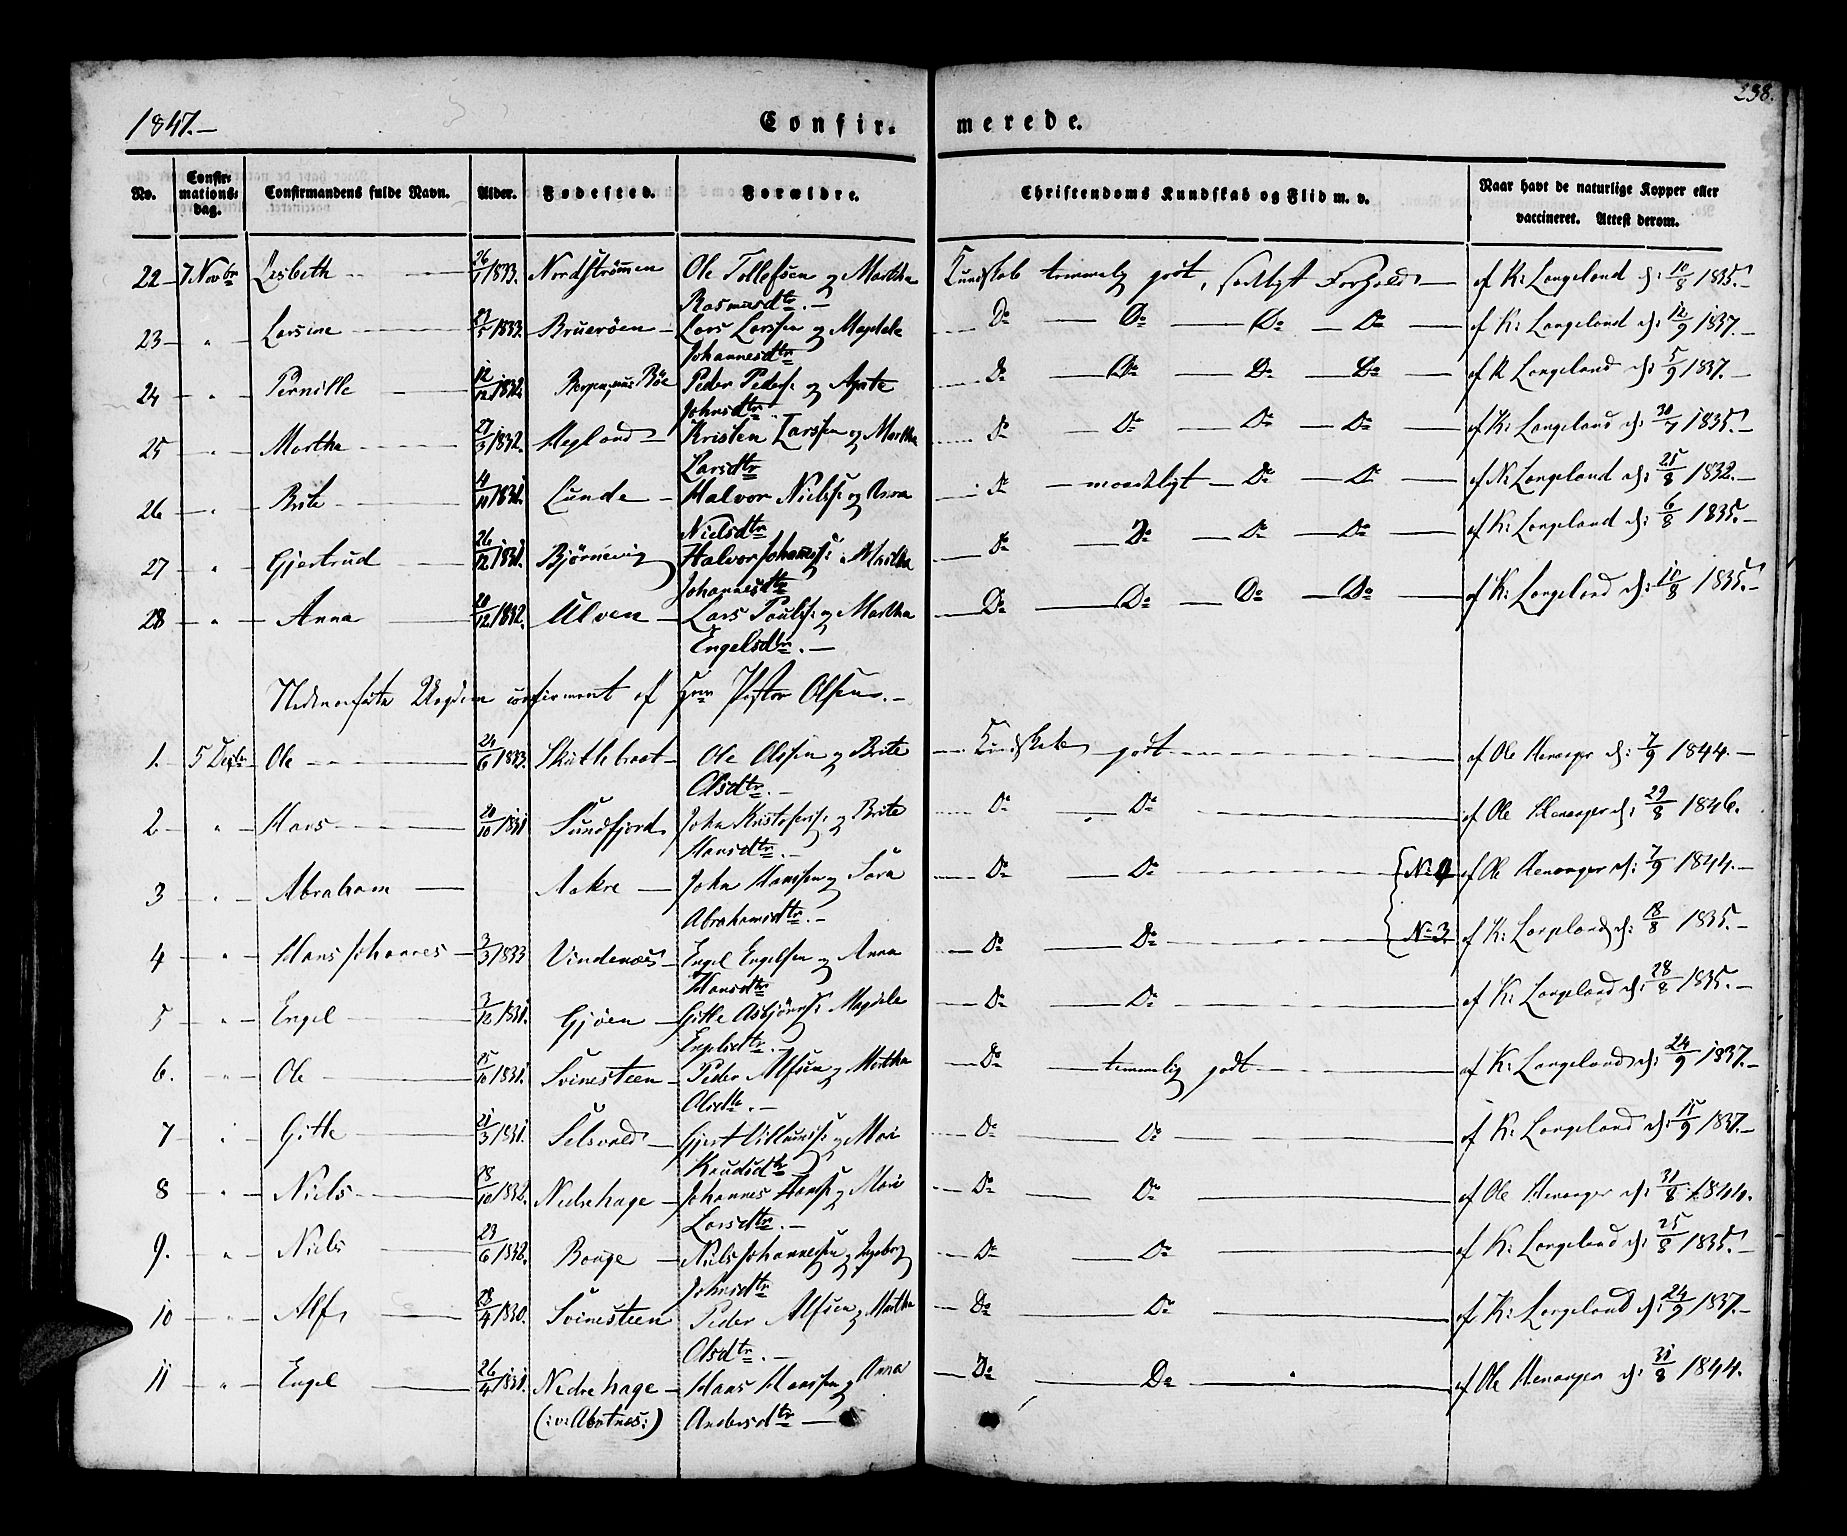 238.
1847.–
Confirmerede.
No. Confirmationsdag. Confirmandens fulde Navn. Alder. Fødested. Forældre. Christendoms Kundskab og Flid m. v. Naar havt de naturlige Kopper eller vaccineret. Attest derom.
22 7 Novbr Lisbeth 26/1 1833. Nordstrømen Ole Tollefsen og Martha Kundskab temmelig godt, sædligt Forhold af K: Langeland d: 10/8 1835.–
Rasmusdtr.–
23 " Larsine 27/5 1833. Bruerøen Lars Larssen og Magdele Do Do Do Do af K: Langeland d: 12/9 1837.–
Johannesdtr
24 " Pernille 12/12 1832. Bergen, Bøe Peder Peders: og Agate Do Do Do Do af K Langeland d: 5/9 1837.–
Johnsdtr
25 " Martha 27/3 1832. Hegland Kristen Larssen og Martha Do Do Do Do af K: Langeland d: 30/7 1835.–
Larsdtr
26 " Brite 4/11 1831. Lunde Halvor Niels: og Anna Do maadeligt Do Do af N: Langeland d: 25/8 1832.–
Nielsdtr
27 " Gjertrud 26/12 1831. Bjørnevig Halvor Johannes: Martha Do Do Do Do af K: Langeland d: 6/8 1835.–
Johannesdtr
28 " Anna 20/12 1832. Ulven Lars Pauls: og Martha Do Do Do Do af K: Langeland d: 10/8 1835.–
Engelsdtr.–
Nedenanførte Ungdom confirmeret af Hrr Pastor Olsen.–
1. 5 Decbr Ole 24/6 1833. Skutleboat Ole Olssen og Brite Kundskab godt af Ole Henanger d: 7/9 1844.–
Olsdtr.–
2 " Hans 20/10 1831 Sundfjord John Kristofers: og Brite Do Do af Ole Henanger d: 29/8 1846.
Hansdtr.–
3 " Abraham Aakre John Hanssen og Sara Do Do No 4 af Ole Henanger d: 7/9 1844.–
Abrahamsdtr.–
4 " Hans Johannes 3/3 1833 Vindenæs Engel Engelsen og Anna Do Do No 3. af K: Langeland d: 18/8 1835.–
Hansdtr
5 " Engel 7/12 1831. Gjøen Gitle Asbjørns: Magdele Do Do af K: Langeland d: 28/8 1835.–
Engelsdtr.
6. " Ole 15/10 1831. Svinesteen Peder Alfsen og Martha Do temmelig godt af K: Langeland d: 24/9 1837.–
Olsdtr.–
7 " Gitle 21/3 1831. Selsvold Gjert Villums: og Mari Do Do af K: Langeland d: 15/9 1837.–
Knudsdtr
8 " Niels 28/10 1832. Nedrehage Johannes Hans: og Mari Do Do af Ole Henanger d: 31/8 1844.
Larsdtr.–
9. " Niels 23/6 1832. Bouge Niels Johannessen og Ingeborg Do Do af K: Langeland d: 25/8 1835.–
Johnsdtr
10 " Alf 28/4 1830. Svinesteen Peder Alfsen og Martha Do Do af K: Langeland d: 24/9 1837.–
Olsdtr.–
11 " Engel 26/4 1831. Nedrehage Hans Hanssen og Anna Do Do af Ole Henanger d: 31/8 1844.
Andersdtr